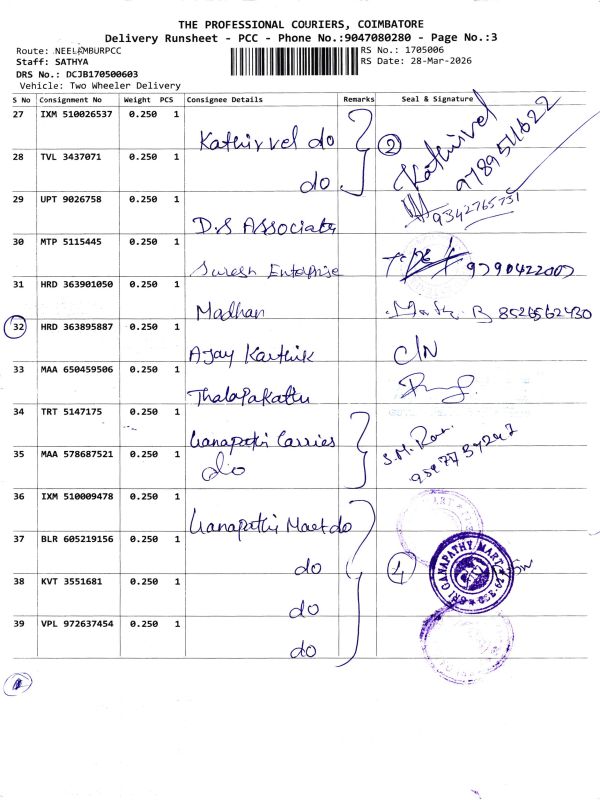 THE PROFESSIONAL COURIERS, COIMBATORE
Delivery Runsheet - PCC - Phone No.:9047080280 - Page No.:3
Route: NEELAMBURPCC
RS No.: 1705006
Staff: SATHYA
RS Date: 28-Mar-2026
DRS No.: DCJB170500603
Vehicle: Two Wheeler Delivery
S No Consignment No Weight PCS Consignee Details Remarks Seal & Signature
27 IXM 510026537 0.250 1 Kathirvel do 2 Kathirvel
28 TVL 3437071 0.250 1 do
29 UPT 9026758 0.250 1 D.S Associates 9342765731
30 MTP 5115445 0.250 1 Suresh Enterprise
31 HRD 363901050 0.250 1 Madhan 8526562430
32 HRD 363895887 0.250 1 Ajay Karthik C/N
33 MAA 650459506 0.250 1 Thalapakattu
34 TRT 5147175 0.250 1 Ganapathi Carries
35 MAA 578687521 0.250 1 do
36 IXM 510009478 0.250 1 Ganapathi Mart do
37 BLR 605219156 0.250 1 do 4 SRI GANAPATHY MART
38 KVT 3551681 0.250 1 do
39 VPL 972637454 0.250 1 do